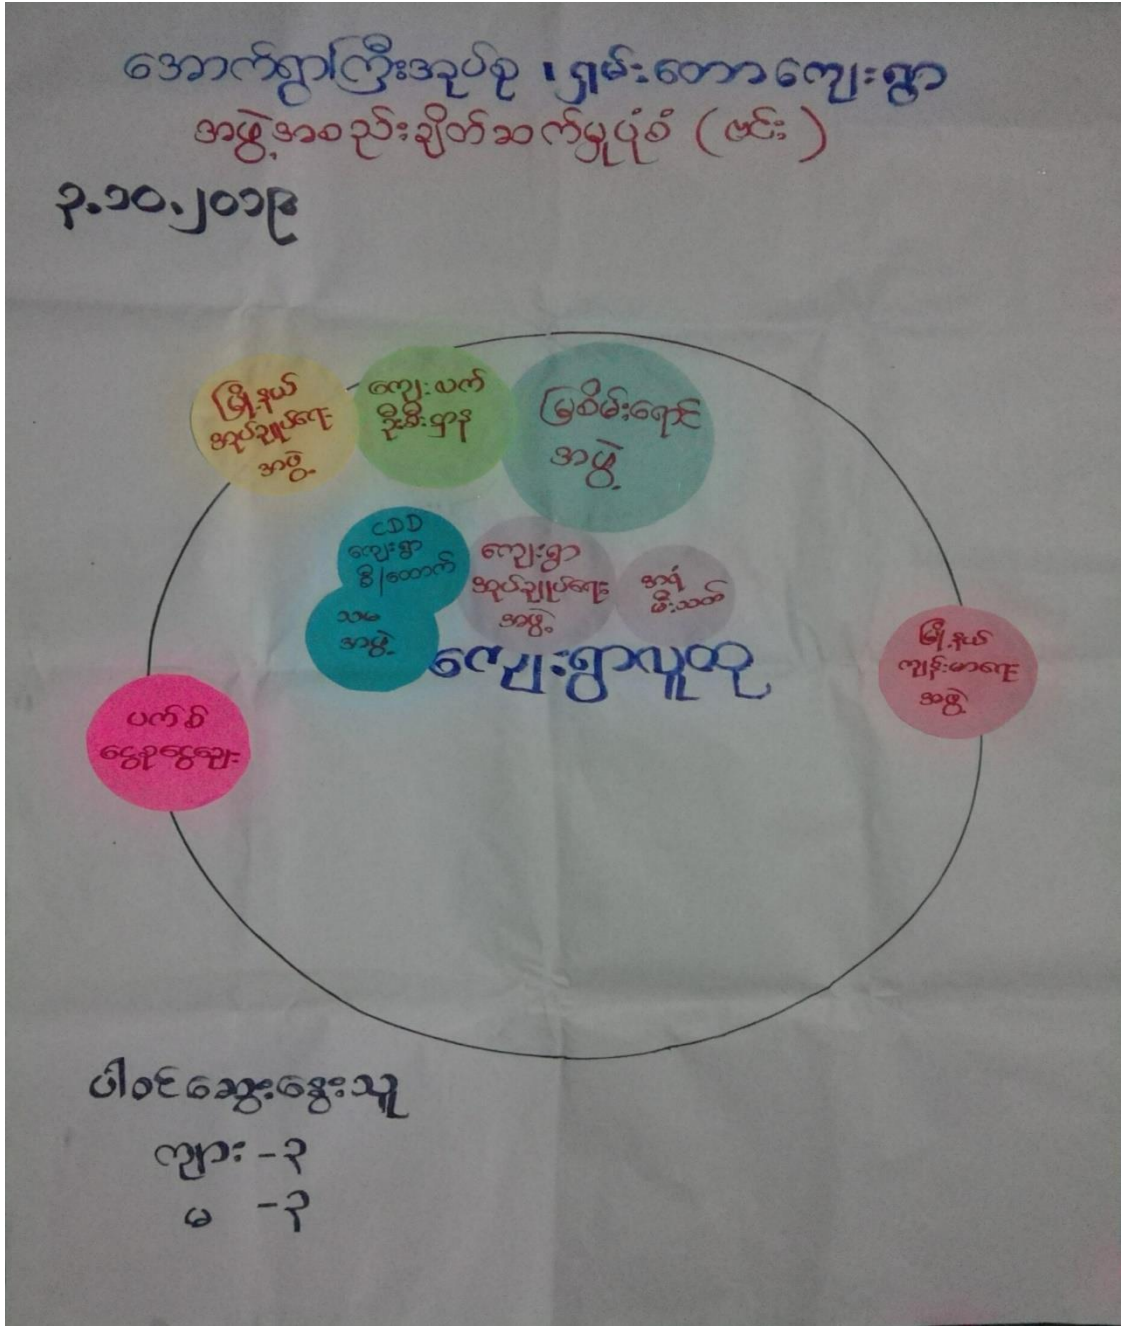 အောက်ရွာကြီးအုပ်စု ၊ ရှမ်းတောကျေးရွာ
အဖွဲ့အစည်းချိတ်ဆက်မှုပုံစံ (ဗင်း)
၃.၁၀.၂၀၁၉
မြို့နယ်
အုပ်ချုပ်ရေး
အဖွဲ့
ကျေးလက်
ဦးစီးဌာန
မြစိမ်းရောင်
အဖွဲ့
CDD
ကျေးရွာ
စီ/ထောက်
သမ
အဖွဲ့
ကျေးရွာ
အုပ်ချုပ်ရေး
အဖွဲ့
အရံ
မီးသတ်
ကျေးရွာလူထု
မြို့နယ်
ကျန်းမာရေး
အဖွဲ့
ပက်စ်
ငွေစုငွေချေး
ပါဝင်ဆွေးနွေးသူ
ကျား - ၃
မ - ၃